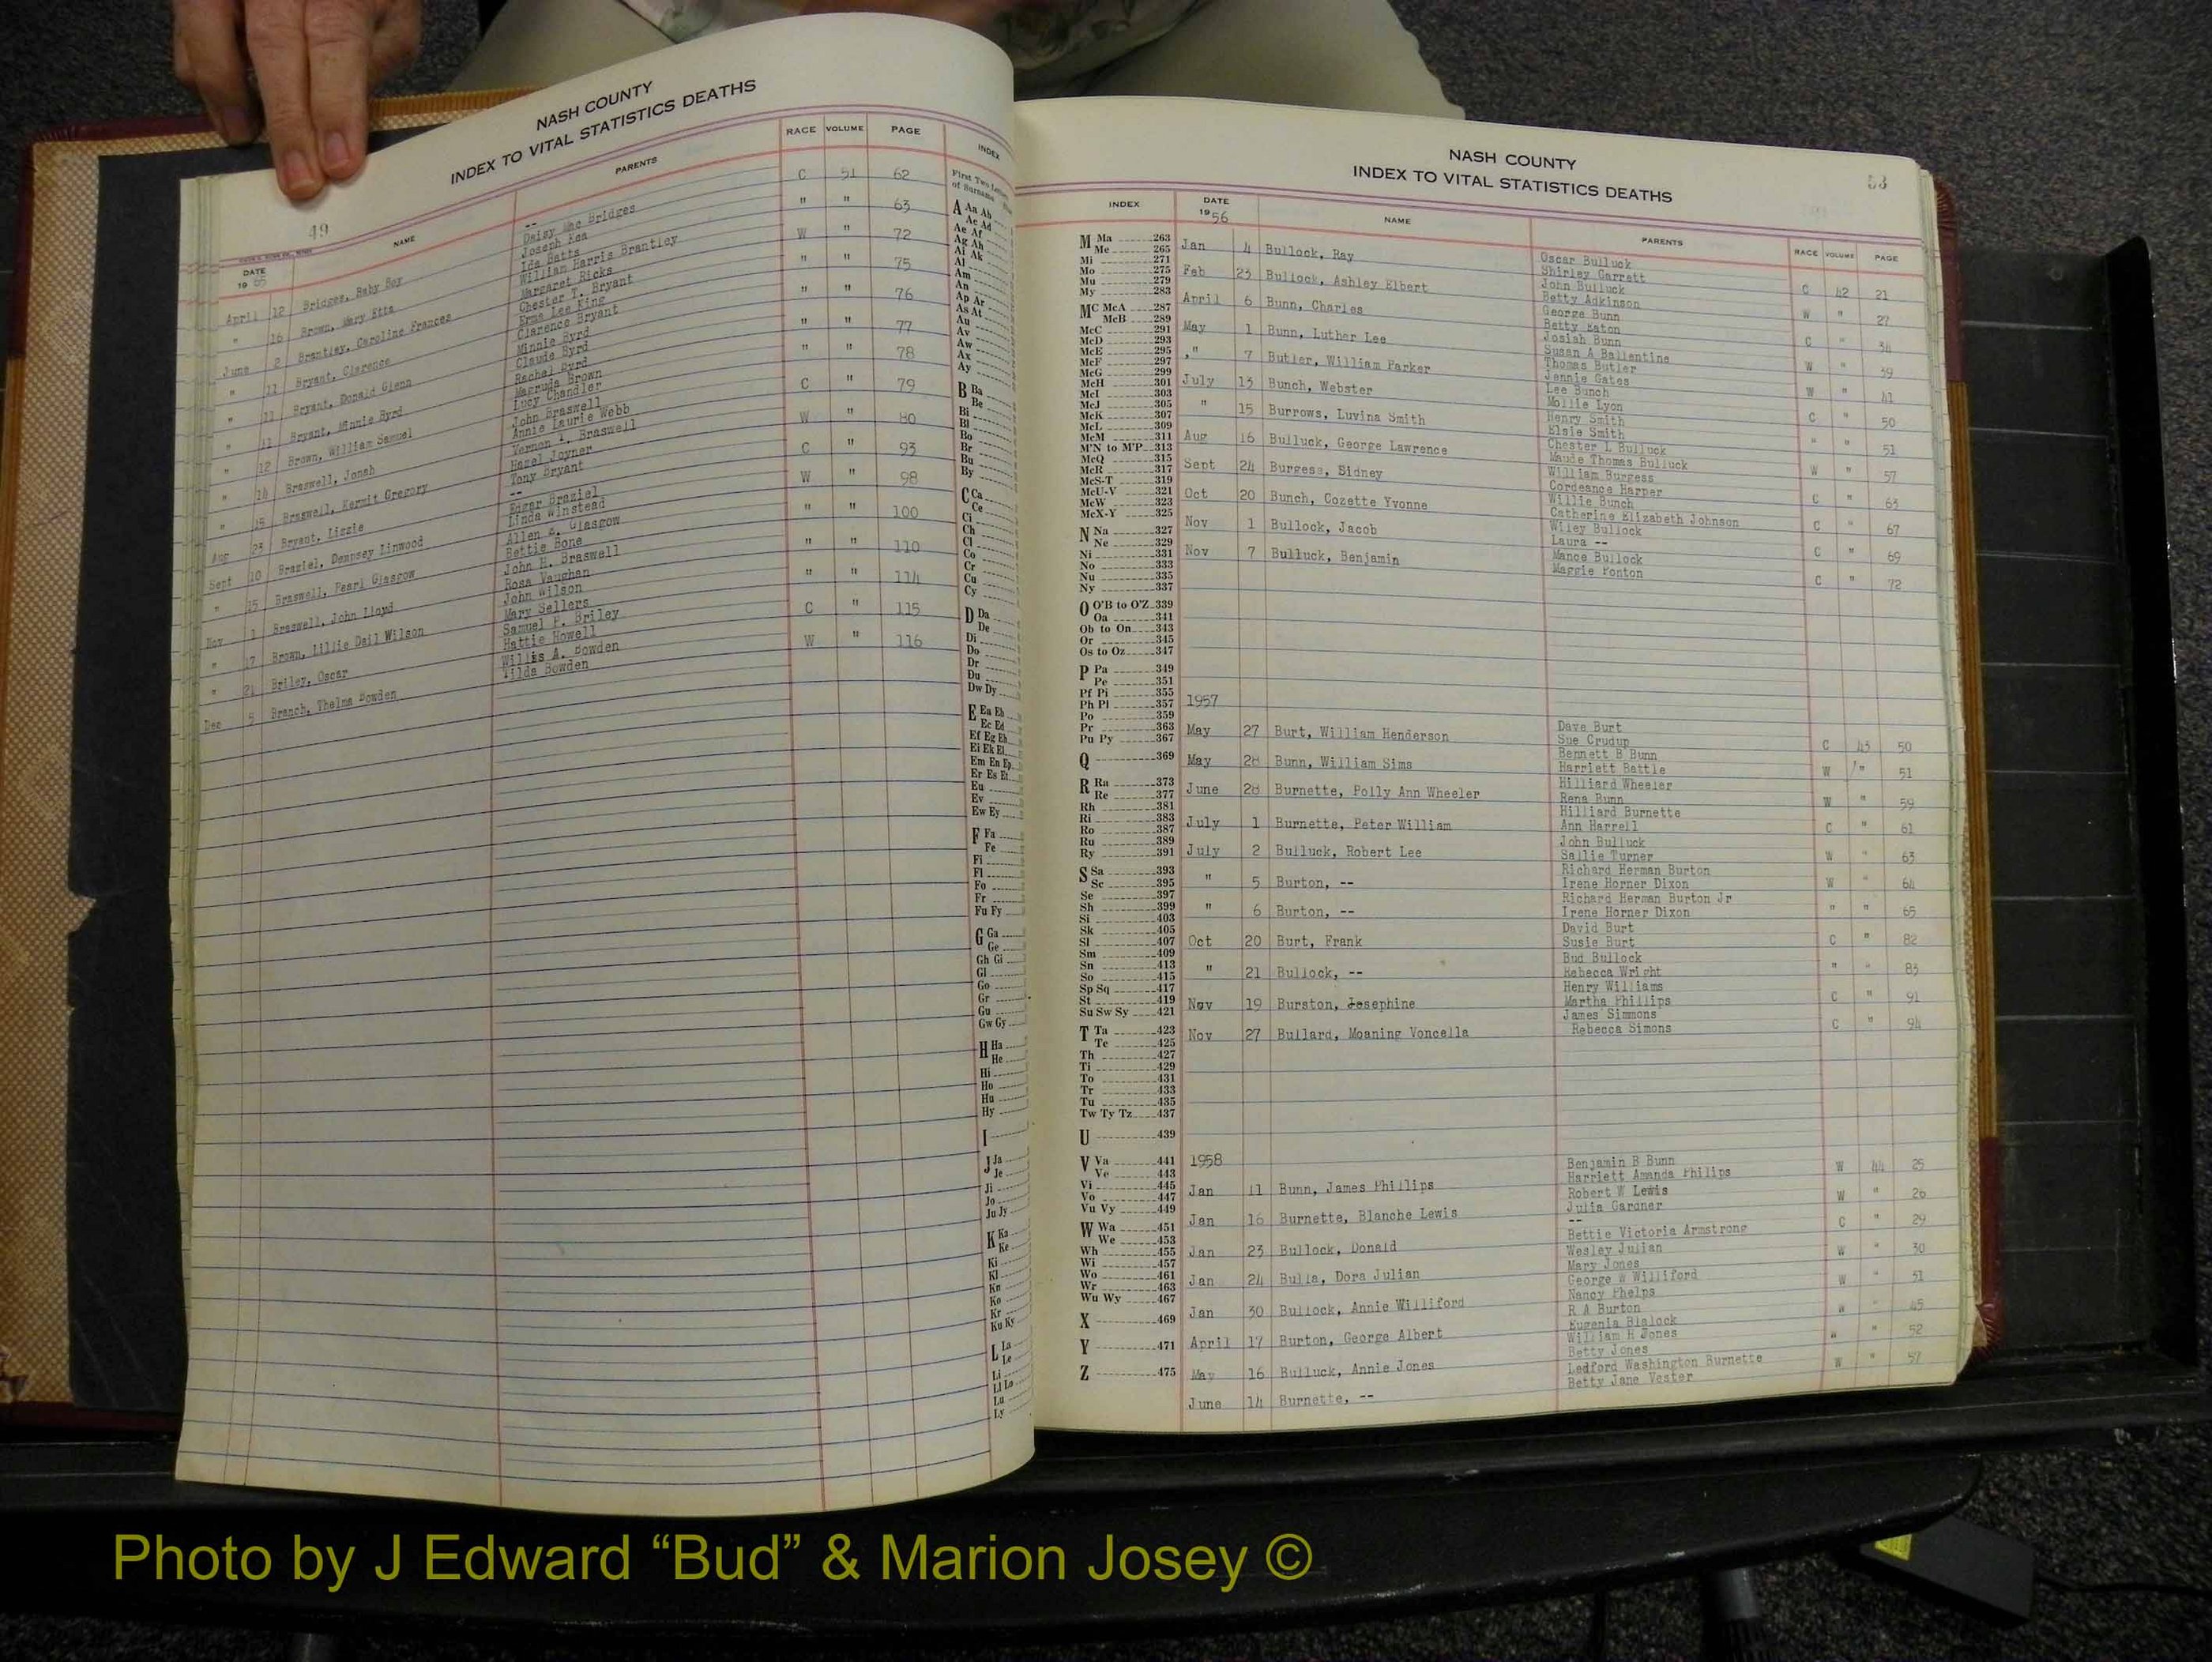 NASH COUNTY
INDEX TO VITAL STATISTICS DEATHS
49
DATE NAME PARENTS RACE VOLUME PAGE INDEX
19
April 12 Bridges, Baby Boy -- Daisy Mae Bridges C 51 62
" 16 Brown, Mary Etta Joseph Rea Ida Batts " " 63
June 2 Brantley, Caroline Frances William Harris Brantley Margaret Ricks W " 72
" 11 Bryant, Clarence Chester T. Bryant Erma Lee King " " 75
" 11 Bryant, Donald Glenn Clarence Bryant Minnie Byrd " " 76
" 11 Bryant, Minnie Byrd Claude Byrd Rachel Byrd " " 77
" 12 Brown, William Samuel Brown Lucy Chandler " " 78
" 14 Braswell, Jonah John Braswell Annie Laurie Webb C " 79
" 15 Braswell, Kermit Gregory Vernon T. Braswell Hazel Joyner W " 80
Aug 23 Bryant, Lizzie Tony Bryant -- C " 93
Sept 10 Braziel, Dempsey Linwood Edgar Braziel Linda Winstead W " 98
" 15 Braswell, Pearl Glasgow Allen Glasgow Bettie Bone " " 100
Nov 1 Braswell, John Lloyd John H. Braswell Rosa Vaughan " " 110
" 17 Brown, Lillie Dail Wilson John Wilson Mary Sellers " " 114
" 21 Briley, Oscar Samuel P. Briley Hattie Howell C " 115
Dec 5 Branch, Thelma Bowden Willis A. Bowden Tilda Bowden W " 116
First Two
of Surname
A Aa Ab
Ac Ad
Ae Af
Ag Ah
Ai Ak
Al
Am
An
Ap Ar
As At
Au
Av
Aw
Ax
Ay
B Ba
Be
Bi
Bl
Bo
Br
Bu
By
C Ca
Ce
Ci
Ch
Cl
Co
Cr
Cu
Cy
D Da
De
Di
Do
Dr
Du
Dw Dy
E Ea Eb
Ec Ed
Ef Eg Eh
Ei Ek El
Em En Ep
Er Es Et
Eu
Ev
Ew Ey
F Fa
Fe
Fi
Fl
Fo
Fr
Fu Fy
G Ga
Ge
Gh Gi
Gl
Go
Gr
Gu
Gw Gy
H Ha
He
Hi
Ho
Hu
Hy
I
J Ja
Je
Ji
Jo
Ju Jy
K Ka
Ke
Ki
Kl
Kn
Ko
Kr
Ku Ky
L La
Le
Li
Ll Lo
Lu
Ly
NASH COUNTY
INDEX TO VITAL STATISTICS DEATHS
53
INDEX DATE NAME PARENTS RACE VOLUME PAGE
1956
M Ma 263
Me 265
Mi 271
Mo 275
Mu 279
My 283
MC McA 287
McB 289
McC 291
McD 293
McE 295
McF 297
McG 299
McH 301
McI 303
McJ 305
McK 307
McL 309
McM 311
M'N to M'P 313
McQ 315
McR 317
McS-T 319
McU-V 321
McW 323
McX-Y 325
N Na 327
Ne 329
Ni 331
No 333
Nu 335
Ny 337
O O'B to O'Z 339
Oa 341
Ob to On 343
Or 345
Os to Oz 347
P Pa 349
Pe 351
Pf Pi 355
Ph Pl 357
Po 359
Pr 363
Pu Py 367
Q 369
R Ra 373
Re 377
Rh 381
Ri 383
Ro 387
Ru 389
Ry 391
S Sa 393
Sc 395
Se 397
Sh 399
Si 403
Sk 405
Sl 407
Sm 409
Sn 413
So 415
Sp Sq 417
St 419
Su Sw Sy 421
T Ta 423
Te 425
Th 427
Ti 429
To 431
Tr 433
Tu 435
Tw Ty Tz 437
U 439
V Va 441
Ve 443
Vi 445
Vo 447
Vu Vy 449
W Wa 451
We 453
Wh 455
Wi 457
Wo 461
Wr 463
Wu Wy 467
X 469
Y 471
Z 475
Jan 4 Bullock, Ray Oscar Bulluck Shirley Garrett C 42 21
Feb 23 Bullock, Ashley Elbert John Bulluck Betty Adkinson W " 27
April 6 Bunn, Charles George Bunn Betty Eaton C " 34
May 1 Bunn, Luther Lee Josiah Bunn Susan A Ballentine W " 39
" 7 Butler, William Parker Thomas Butler Jennie Gates W " 41
July 13 Bunch, Webster Lee Bunch Mollie Lyon C " 50
" 15 Burrows, Luvina Smith Henry Smith Elsie Smith " " 51
Aug 16 Bulluck, George Lawrence Chester L Bulluck Maude Thomas Bulluck W " 57
Sept 24 Burgess, Sidney William Burgess Cordeance Harper C " 63
Oct 20 Bunch, Cozette Yvonne Willie Bunch Catherine Elizabeth Johnson C " 67
Nov 1 Bullock, Jacob Wiley Bullock Laura -- C " 69
Nov 7 Bulluck, Benjamin Mance Bullock Maggie Ponton C " 72
1957
May 27 Burt, William Henderson Dave Burt Sue Crudup C 43 50
May 28 Bunn, William Sims Bennett B Bunn Harriett Battle W " 51
June 28 Burnette, Polly Ann Wheeler Hilliard Wheeler Rena Bunn W " 59
July 1 Burnette, Peter William Hilliard Burnette Ann Harrell C " 61
July 2 Bulluck, Robert Lee John Bulluck Sallie Turner W " 63
" 5 Burton, -- Richard Herman Burton Irene Horner Dixon W " 64
" 6 Burton, -- Richard Herman Burton Jr Irene Horner Dixon " " 65
Oct 20 Burt, Frank David Burt Susie Burt C " 82
" 21 Bullock, -- Bud Bullock Rebecca Wright " " 83
Nov 19 Burston, Josephine Henry Williams Martha Phillips C " 91
Nov 27 Bullard, Moaning Voncella James Simmons Rebecca Simons C " 94
1958
Jan 11 Bunn, James Phillips Benjamin B Bunn Harriett Amanda Philips W 44 25
Jan 16 Burnette, Blanche Lewis Robert W Lewis Julia Gardner W " 26
Jan 23 Bullock, Donald -- Bettie Victoria Armstrong C " 29
Jan 24 Bulla, Dora Julian Wesley Julian Mary Jones W " 30
Jan 30 Bullock, Annie Williford George W Williford Nancy Phelps W " 31
April 17 Burton, George Albert R A Burton Eugenia Blalock W " 45
May 16 Bulluck, Annie Jones William H Jones Betty Jones W " 52
June 14 Burnette, -- Ledford Washington Burnette Betty Jane Vester W " 57
Photo by J Edward “Bud” & Marion Josey ©